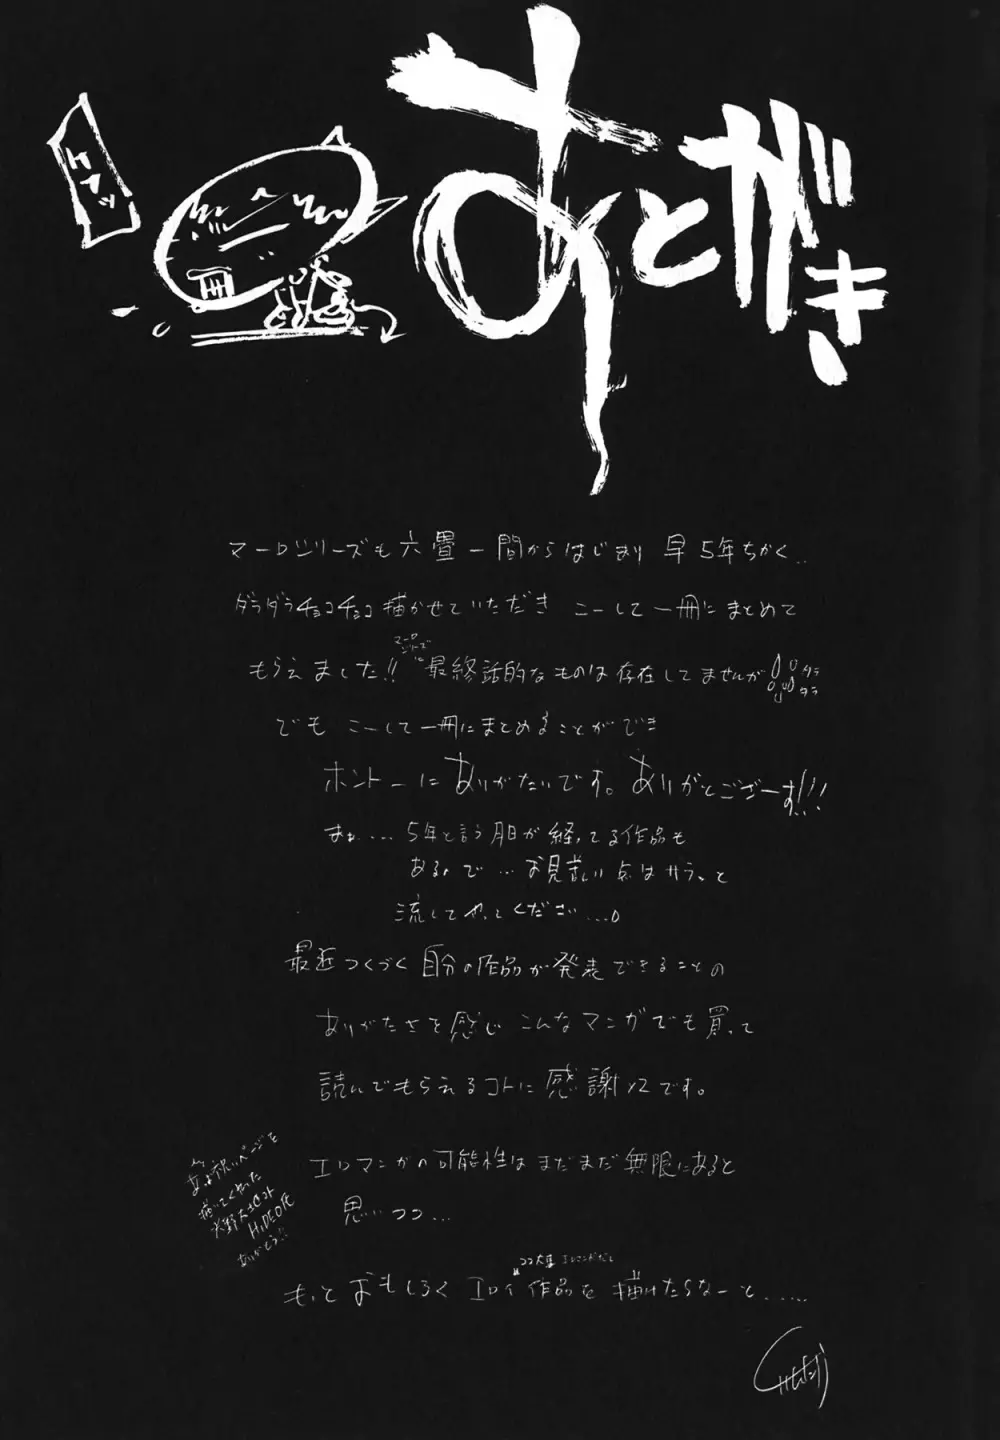 あとがき
マーロシリーズも六畳一間からはじまり 早5年ちかく..
ダラダラチョコチョコ描かせていただき こーして一冊にまとめて
もらえました!! マーロシリーズ 最終話的なものは存在してませんが ダラダラ
でも こーして一冊にまとめることができ
ホントーにありがたいです。ありがとござーます!!!
まぁ....5年と言う月日が経ってる作品も
あるので...お見苦しい点はサラっと
流してやってください...。
最近つくづく自分の作品が発表できることの
ありがたさを感じ こんなマンガでも買って
読んでもらえるコトに感謝×2です。
エロマンガの可能性はまだまだ無限にあると
思いつつ...
ココ大事 エロマンガだし
もっとおもしろくエロイ作品を描けたらなーと......
お祝いページを
描いてくれた
HIDEO氏
ありがとう!!